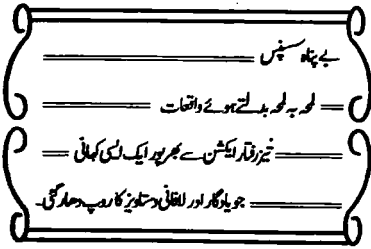 بے پناہ سسپنس
لمحہ بہ لمحہ بدلتے ہوئے واقعات
تیز رفتار ایکشن سے بھرپور ایک ایسی کہانی
جو یادگار اور لافانی دستاویز کا روپ دھار گئی۔